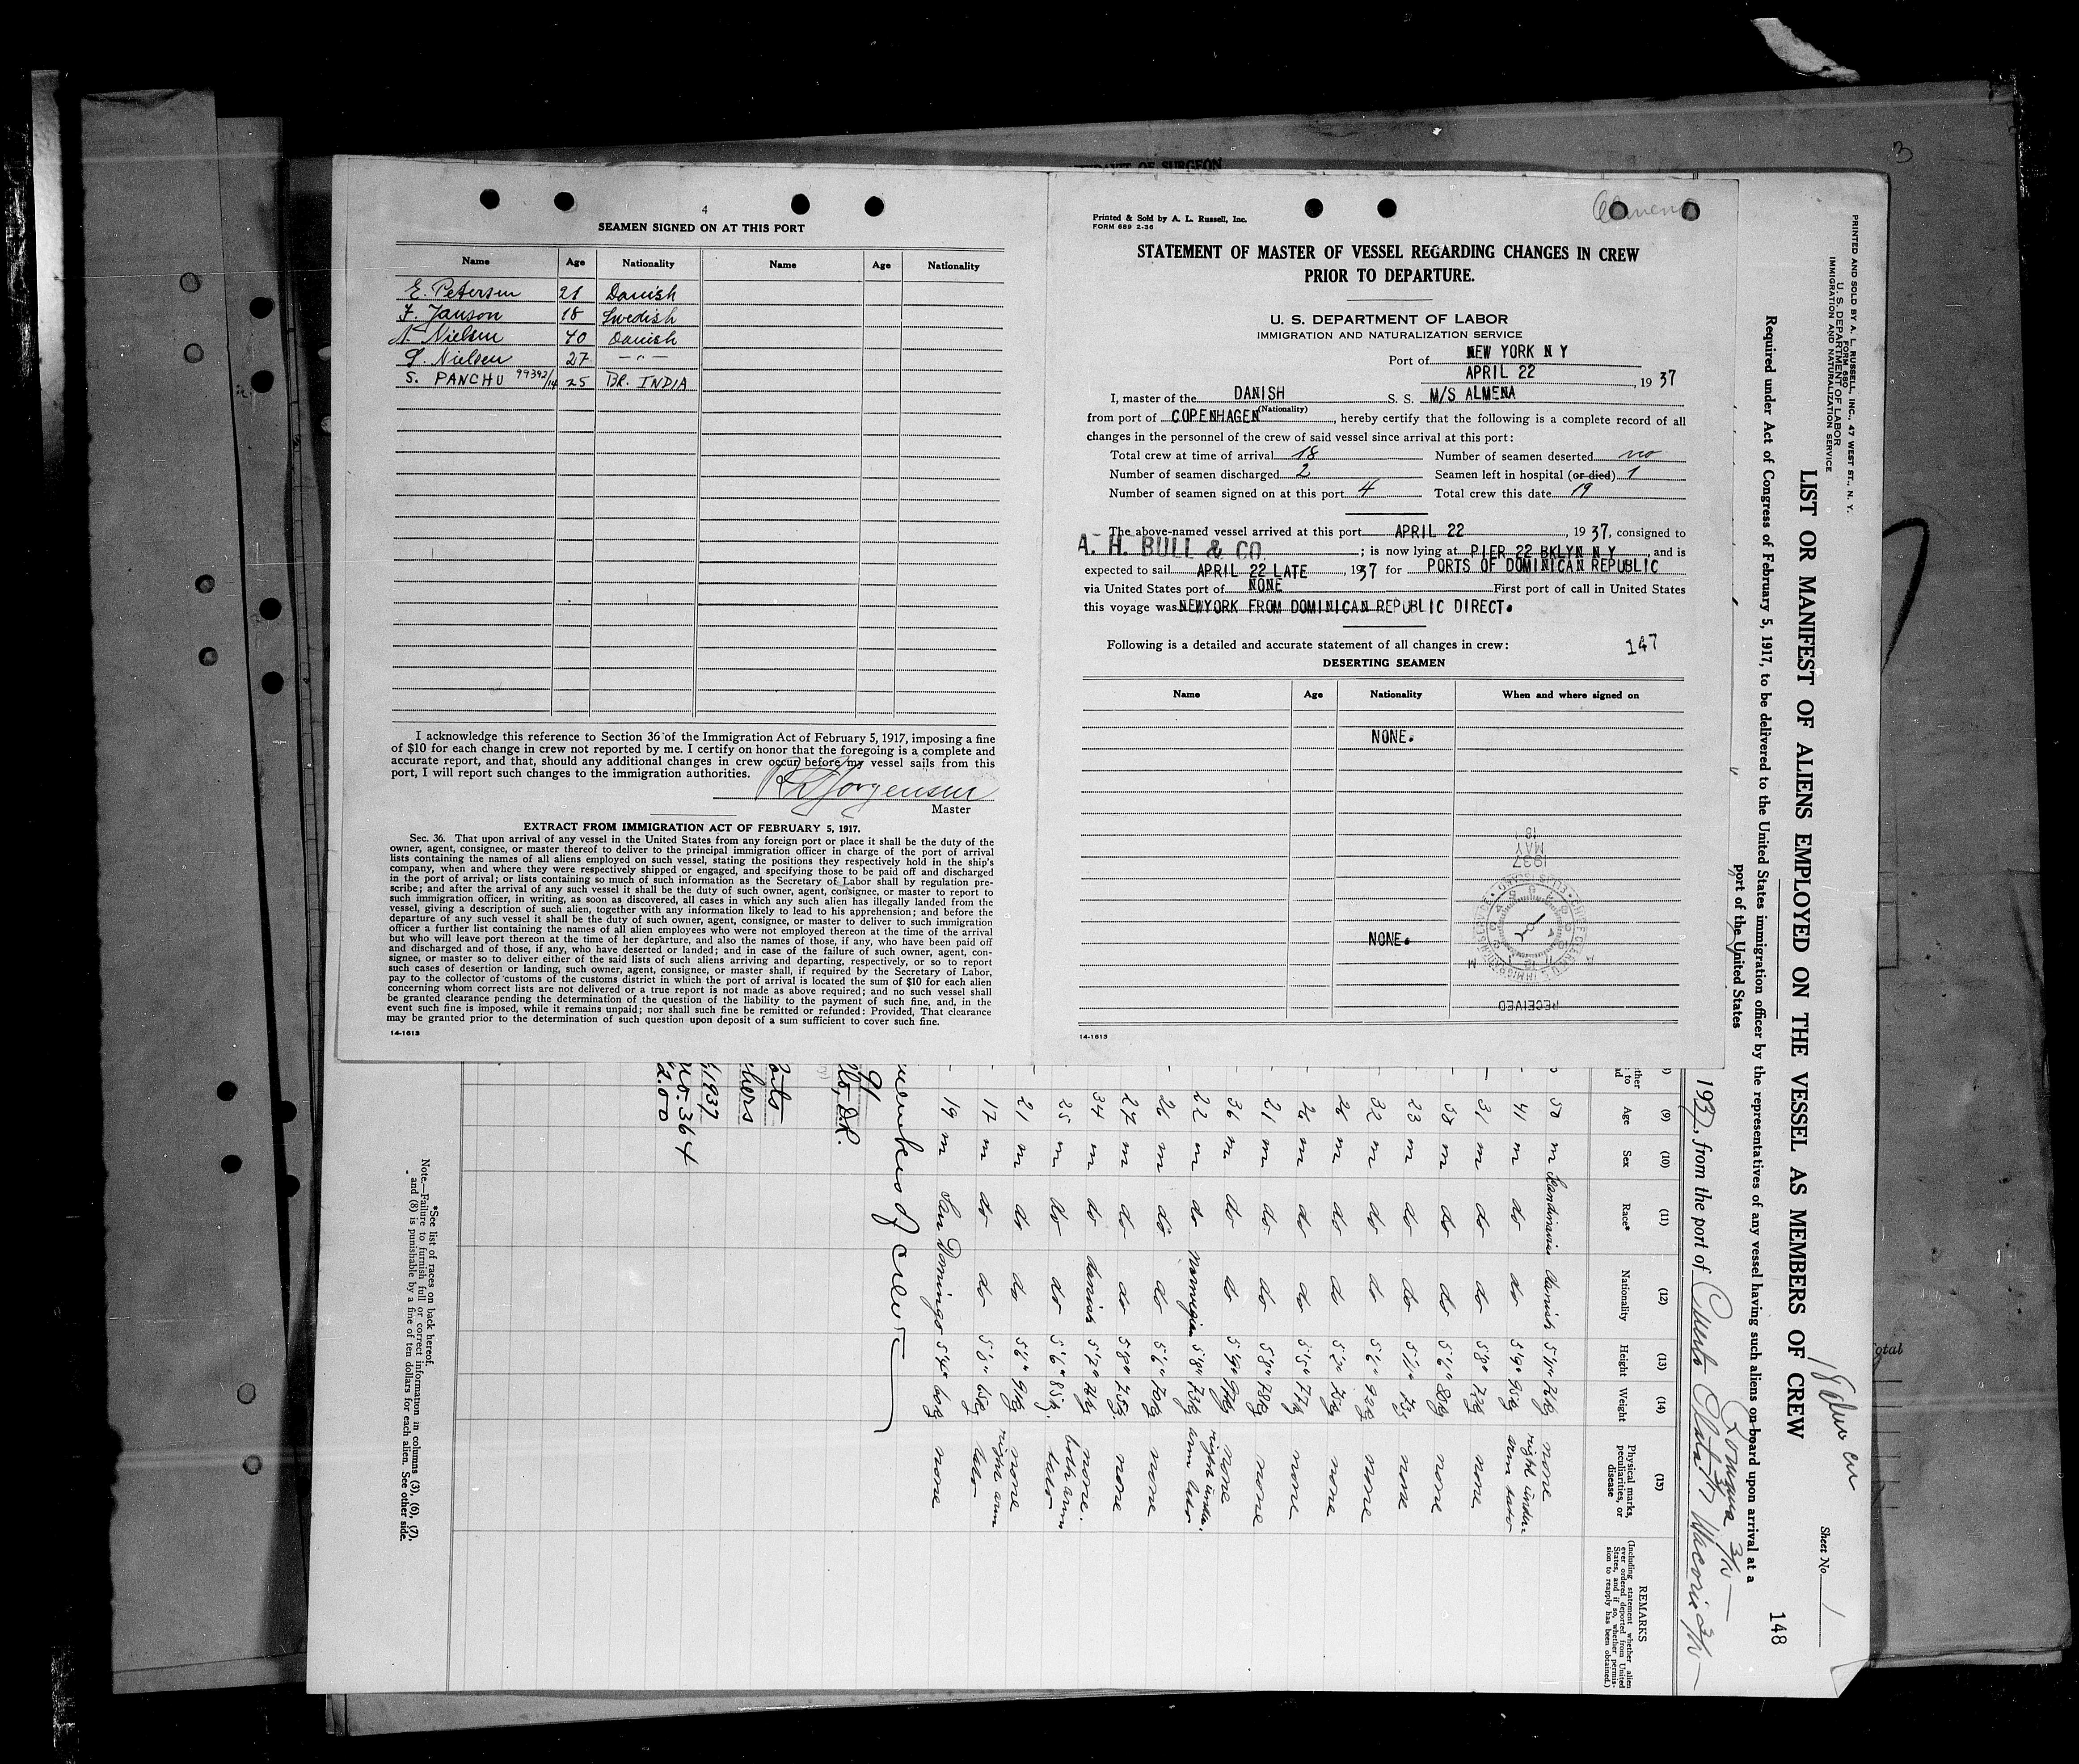 AFFIDAVIT OF SURGEON
3
4
SEAMEN SIGNED ON AT THIS PORT
Name Age Nationality Name Age Nationality
E. Petersen 21 Danish
F. Janson 18 Swedish
A. Nielsen 40 Danish
G. Nielsen 27 — " —
S. PANCHU 99392/14 25 BR. INDIA
I acknowledge this reference to Section 36 of the Immigration Act of February 5, 1917, imposing a fine
of $10 for each change in crew not reported by me. I certify on honor that the foregoing is a complete and
accurate report, and that, should any additional changes in crew occur before my vessel sails from this
port, I will report such changes to the immigration authorities.
Jorgensen
Master
EXTRACT FROM IMMIGRATION ACT OF FEBRUARY 5, 1917.
Sec. 36. That upon arrival of any vessel in the United States from any foreign port or place it shall be the duty of the
owner, agent, consignee, or master thereof to deliver to the principal immigration officer in charge of the port of arrival
lists containing the names of all aliens employed on such vessel, stating the positions they respectively hold in the ship's
company, when and where they were respectively shipped or engaged, and specifying those to be paid off and discharged
in the port of arrival; or lists containing so much of such information as the Secretary of Labor shall by regulation pre-
scribe; and after the arrival of any such vessel it shall be the duty of such owner, agent, consignee, or master to report to
such immigration officer, in writing, as soon as discovered, all cases in which any such alien has illegally landed from the
vessel, giving a description of such alien, together with any information likely to lead to his apprehension; and before the
departure of any such vessel it shall be the duty of such owner, agent, consignee, or master to deliver to such immigration
officer a further list containing the names of all alien employees who were not employed thereon at the time of the arrival
but who will leave port thereon at the time of her departure, and also the names of those, if any, who have been paid off
and discharged and of those, if any, who have deserted or landed; and in case of the failure of such owner, agent, con-
signee, or master so to deliver either of the said lists of such aliens arriving and departing, respectively, or so to report
such cases of desertion or landing, such owner, agent, consignee, or master shall, if required by the Secretary of Labor,
pay to the collector of customs of the customs district in which the port of arrival is located the sum of $10 for each alien
concerning whom correct lists are not delivered or a true report is not made as above required; and no such vessel shall
be granted clearance pending the determination of the question of the liability to the payment of such fine, and, in the
event such fine is imposed, while it remains unpaid; nor shall such fine be remitted or refunded: Provided, That clearance
may be granted prior to the determination of such question upon deposit of a sum sufficient to cover such fine.
14-1613
Almena
Printed & Sold by A. L. Russell, Inc.
FORM 689 2-36
STATEMENT OF MASTER OF VESSEL REGARDING CHANGES IN CREW
PRIOR TO DEPARTURE.
U. S. DEPARTMENT OF LABOR
IMMIGRATION AND NATURALIZATION SERVICE
Port of NEW YORK N Y
APRIL 22, 1937
I, master of the DANISH S. S. M/S ALMENA
(Nationality)
from port of COPENHAGEN, hereby certify that the following is a complete record of all
changes in the personnel of the crew of said vessel since arrival at this port:
Total crew at time of arrival 18 Number of seamen deserted no
Number of seamen discharged 2 Seamen left in hospital (or died) 1
Number of seamen signed on at this port 4 Total crew this date 19
The above-named vessel arrived at this port APRIL 22, 1937, consigned to
A. H. BULL & CO ; is now lying at PIER 22 BKLYN N Y, and is
expected to sail APRIL 22 LATE, 1937 for PORTS OF DOMINICAN REPUBLIC
via United States port of NONE First port of call in United States
this voyage was NEWYORK FROM DOMINICAN REPUBLIC DIRECT.
Following is a detailed and accurate statement of all changes in crew: 147
DESERTING SEAMEN
Name Age Nationality When and where signed on
NONE.
NONE.
18
MAY
1937
RECEIVED
14-1613
PRINTED AND SOLD BY A. L. RUSSELL, INC., 47 WEST ST., N. Y.
FORM 680
U. S. DEPARTMENT OF LABOR
IMMIGRATION AND NATURALIZATION SERVICE
Sheet No. 1
LIST OR MANIFEST OF ALIENS EMPLOYED ON THE VESSEL AS MEMBERS OF CREW
148
Required under Act of Congress of February 5, 1917, to be delivered to the United States immigration officer by the representatives of any vessel having such aliens on board upon arrival at a
port of the United States
Romana 3/4
1937, from the port of Puerto Plata Macoris
(9) (10) (11) (12) (13) (14) (15)
Age Sex Race* Nationality Height Weight Physical marks, peculiarities, or disease
REMARKS
(Including statement whether alien ever ordered deported from United States, and if so, whether permission to reapply has been obtained.)
50 m Scandinavian danish 5'11" none
41 m do do 5'9" right under arm tatto
31 m do do 5'8" none
38 m do do 5'6" none
23 m do do 5'11" none
32 m do do 5'6" none
26 m do do none
26 m do do 5'5" none
21 m do do 5'8" none
36 m do do 5'9" none
22 m do Norwegian 5'8" right under arm tatto
26 m do do 5'6" none
27 m do do 5'8" none
34 m do danish 5'7" none.
25 m do do 5'6" both arms tatto
21 m do do 5'6" none
17 m do do 5'8" right arm tatto
19 m San Domingo 5'4" none
members of crew
91
D.R.
1937
no. 364
2.00
*See list of races on back hereof.
Note.—Failure to furnish full or correct information in columns (3), (6), (7),
and (8) is punishable by a fine of ten dollars for each alien. See other side.